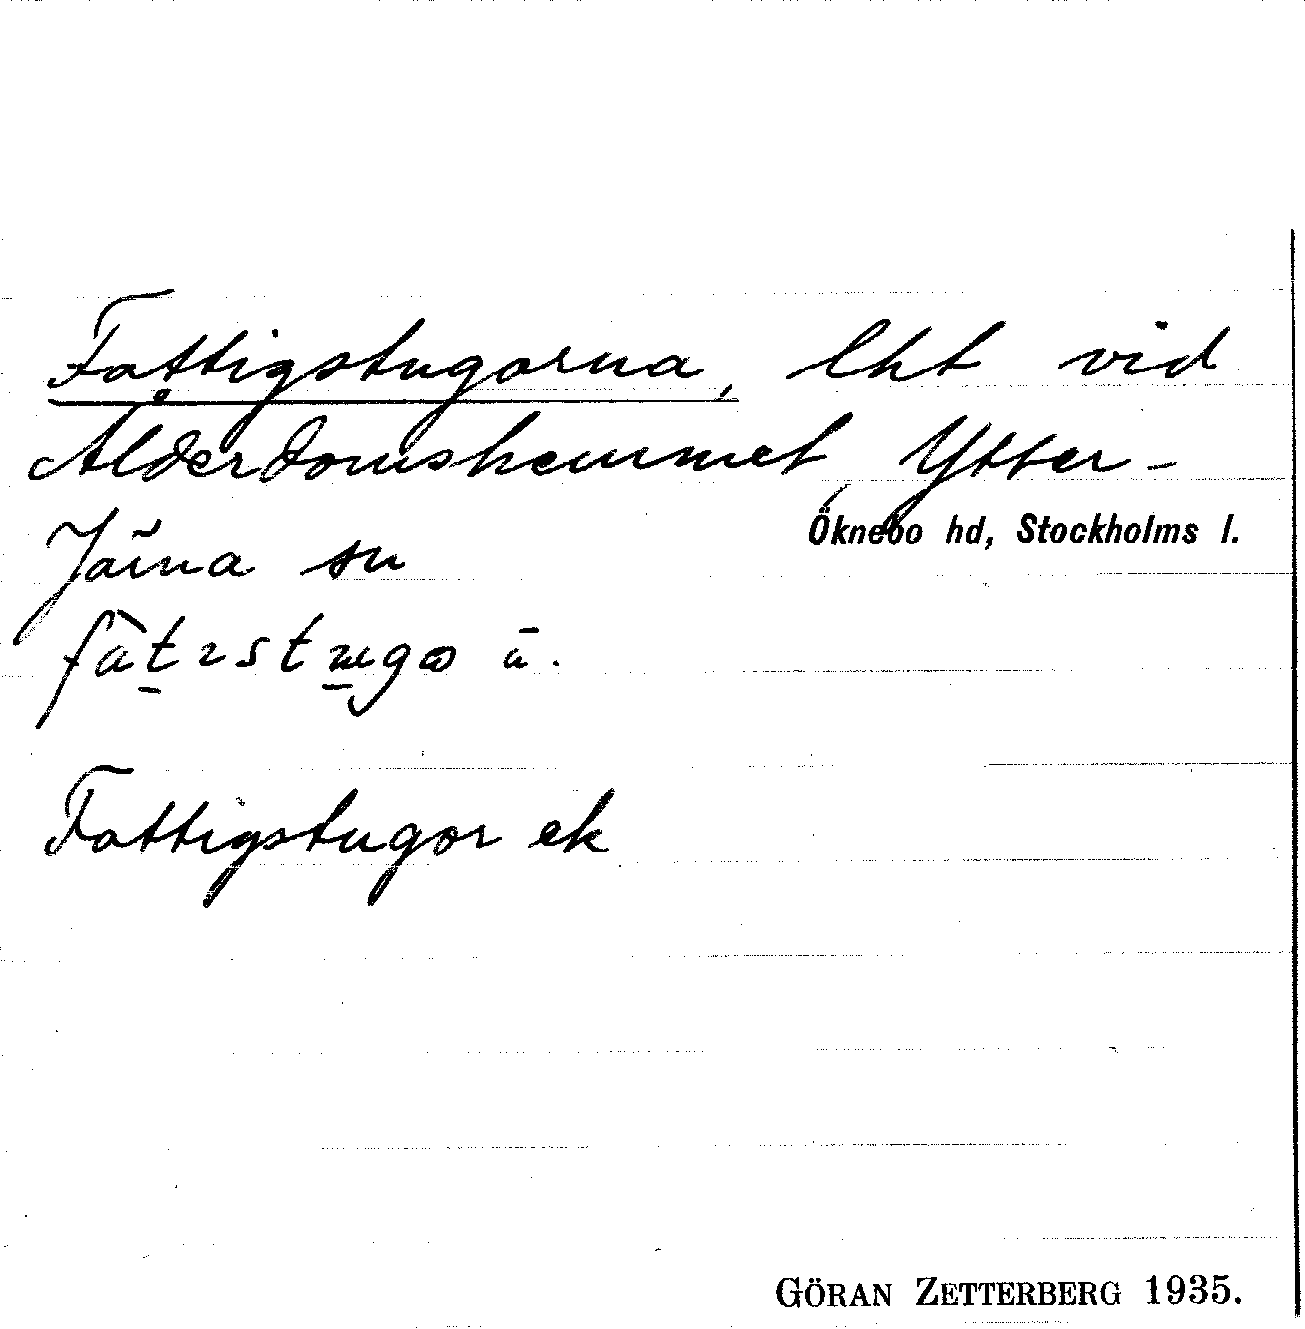 Fattigstugorna, lht vid
Ålderdomshemmet, Ytter-
Öknebo hd, Stockholms l.
Järna sn
Fattigstugor ek
GÖRAN ZETTERBERG 1935.